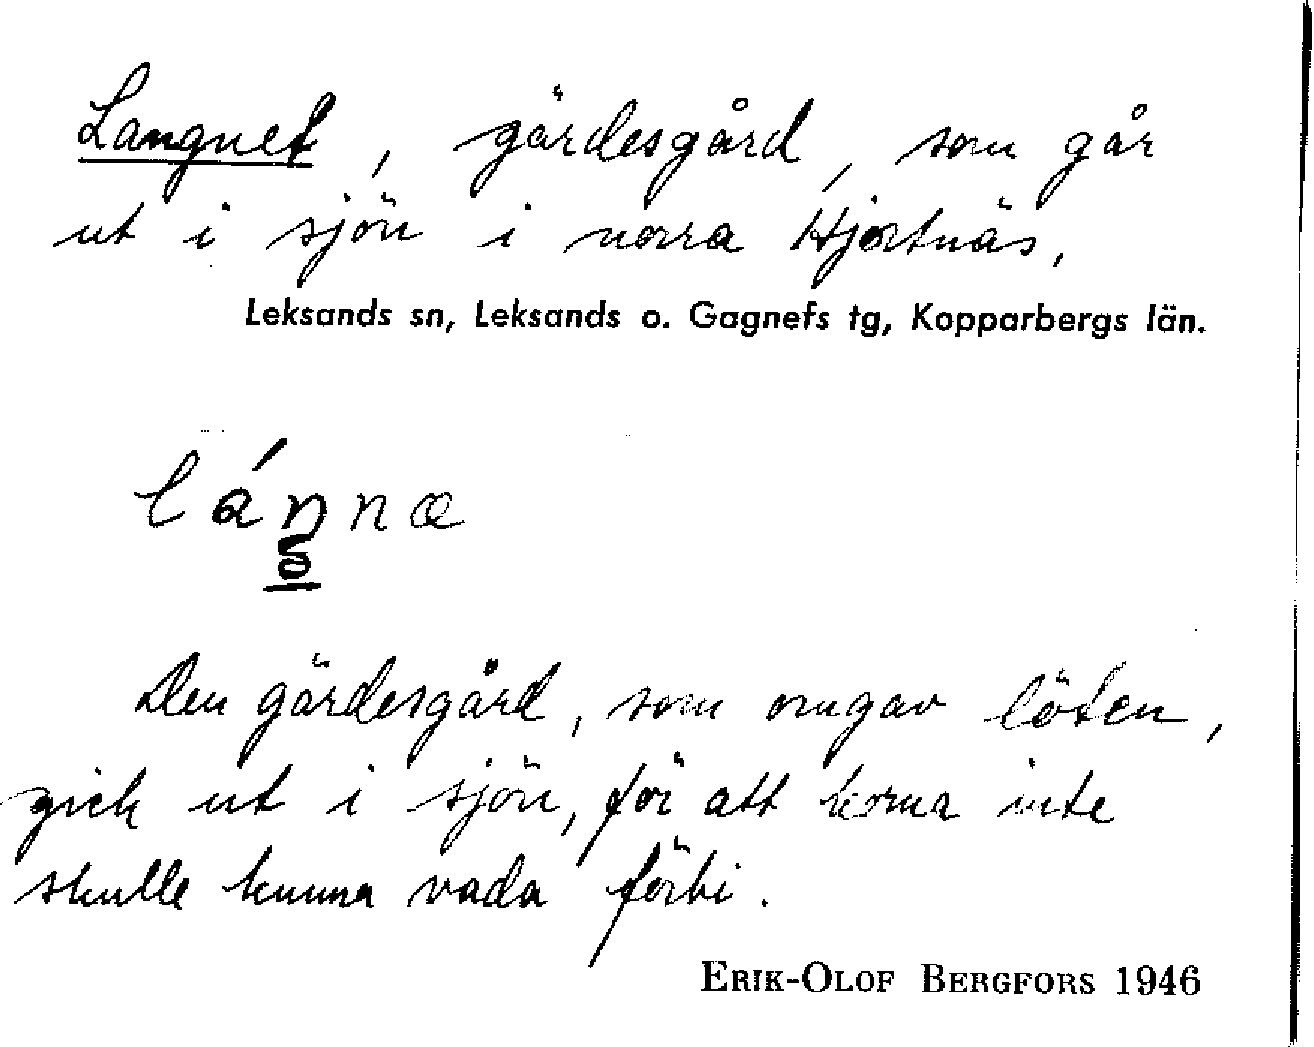 Langnet, gärdesgård, som går
ut i sjön i norra Hjortnäs,
Leksands sn, Leksands o. Gagnefs tg, Kopparbergs län.
láŋnæ
Den gärdesgård, som omgav löten,
gick ut i sjön, för att korna inte
skulle kunna vada förbi.
ERIK-OLOF BERGFORS 1946